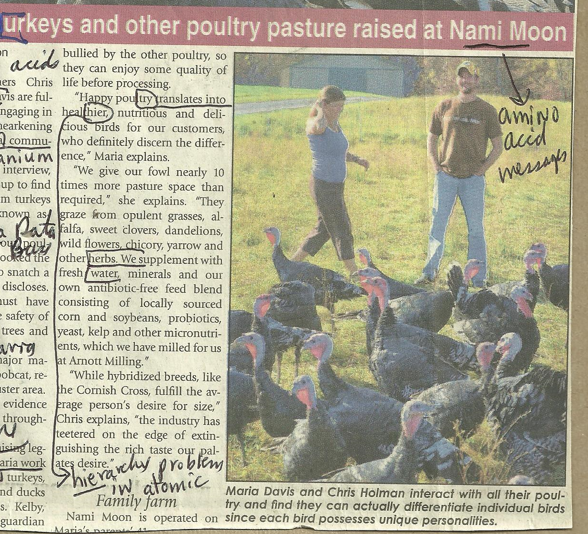 urkeys and other poultry pasture raised at Nami Moon
acids
ers Chris
vis are ful-
ngaging in
hearkening
commu
anium
interview,
up to find
m turkeys
known as
Data
Bus
ooked the
o snatch a
discloses.
ust have
e safety of
trees and
major ma-
bobcat, re-
uster area.
evidence
through-
sing leg-
aria work
turkeys,
nd ducks
s. Kelby,
guardian
bullied by the other poultry, so
they can enjoy some quality of
life before processing.
"Happy poultry translates into
healthier, nutritious and deli-
cious birds for our customers,
who definitely discern the differ-
ence," Maria explains.
"We give our fowl nearly 10
times more pasture space than
required," she explains. "They
graze from opulent grasses, al-
falfa, sweet clovers, dandelions,
wild flowers, chicory, yarrow and
other herbs. We supplement with
fresh water, minerals and our
own antibiotic-free feed blend
consisting of locally sourced
corn and soybeans, probiotics,
yeast, kelp and other micronutri-
ents, which we have milled for us
at Arnott Milling."
"While hybridized breeds, like
the Cornish Cross, fulfill the av-
erage person's desire for size,"
Chris explains, "the industry has
teetered on the edge of extin-
guishing the rich taste our pal-
ates desire."
hierarchy problem
in atomic
Family farm
Nami Moon is operated on
Maria's
amino
acid
messages
Maria Davis and Chris Holman interact with all their poul-
try and find they can actually differentiate individual birds
since each bird possesses unique personalities.